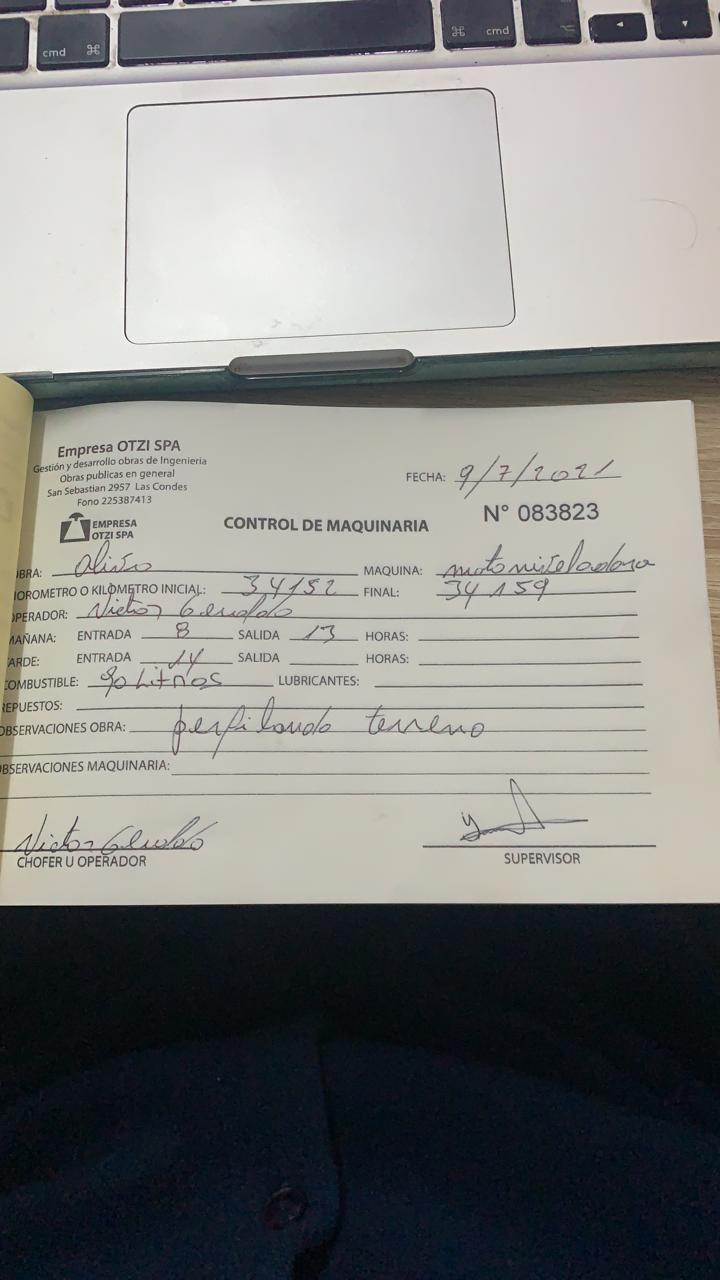 cmd ⌘
⌘ cmd
Empresa OTZI SPA
Gestión y desarrollo obras de Ingenieria
Obras publicas en general
San Sebastian 2957 Las Condes
Fono 225387413
FECHA: 9/7/2021
EMPRESA
OTZI SPA
CONTROL DE MAQUINARIA
N° 083823
OBRA: Olivo MAQUINA: motoniveladora
HOROMETRO O KILÓMETRO INICIAL: 34152 FINAL: 34159
OPERADOR: Victor
MAÑANA: ENTRADA 8 SALIDA 13 HORAS:
TARDE: ENTRADA 14 SALIDA HORAS:
COMBUSTIBLE: 90 Litros LUBRICANTES:
REPUESTOS:
OBSERVACIONES OBRA: perfilando terreno
OBSERVACIONES MAQUINARIA:
Victor
CHOFER U OPERADOR
SUPERVISOR